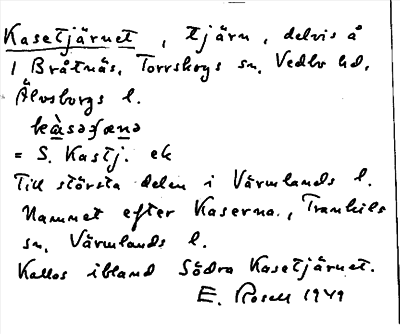 Kasetjärnet, tjärn, delvis å
1 Bråtnäs, Torrskogs sn, Vedbo hd,
Älvsborgs l.
= S. Kastj. ek
Till största delen i Värmlands l.
Namnet efter Kaserna, Trankils
sn, Värmlands l.
Kallas ibland Södra Kasetjärnet.
E. Rosell 1949